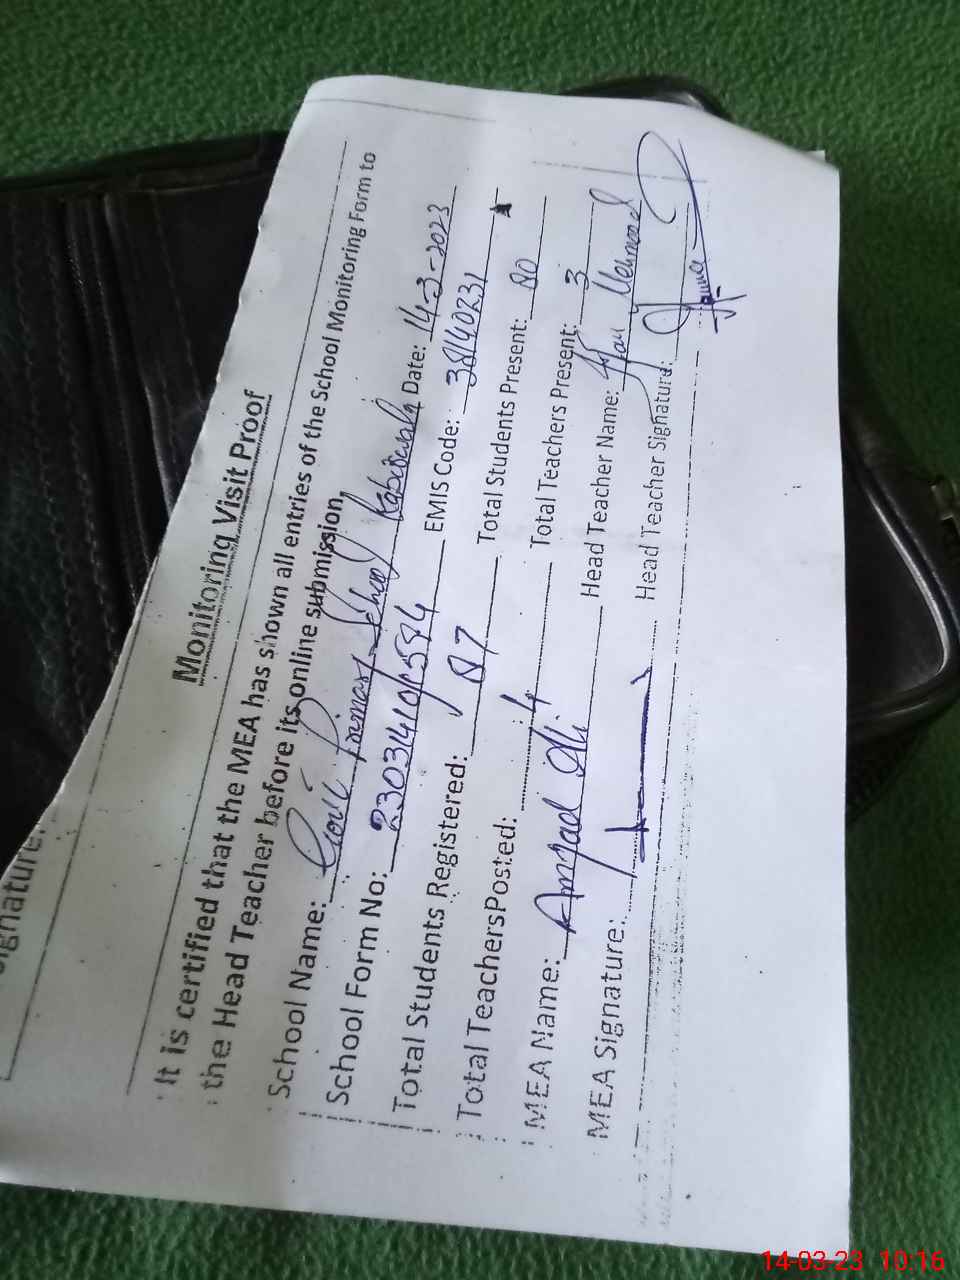 ignature:
Monitoring Visit Proof
It is certified that the MEA has shown all entries of the School Monitoring Form to
the Head Teacher before its online submission.
School Name: Govt Primary School Date: 14-3-2023
School Form No: EMIS Code: 38140231
Total Students Registered: 87 Total Students Present: 80
Total TeachersPosted: 4 Total Teachers Present: 3
MEA Name: Amjad Ali Head Teacher Name: Mehmood
MEA Signature: Head Teacher Signature:
14-03-23 10:16